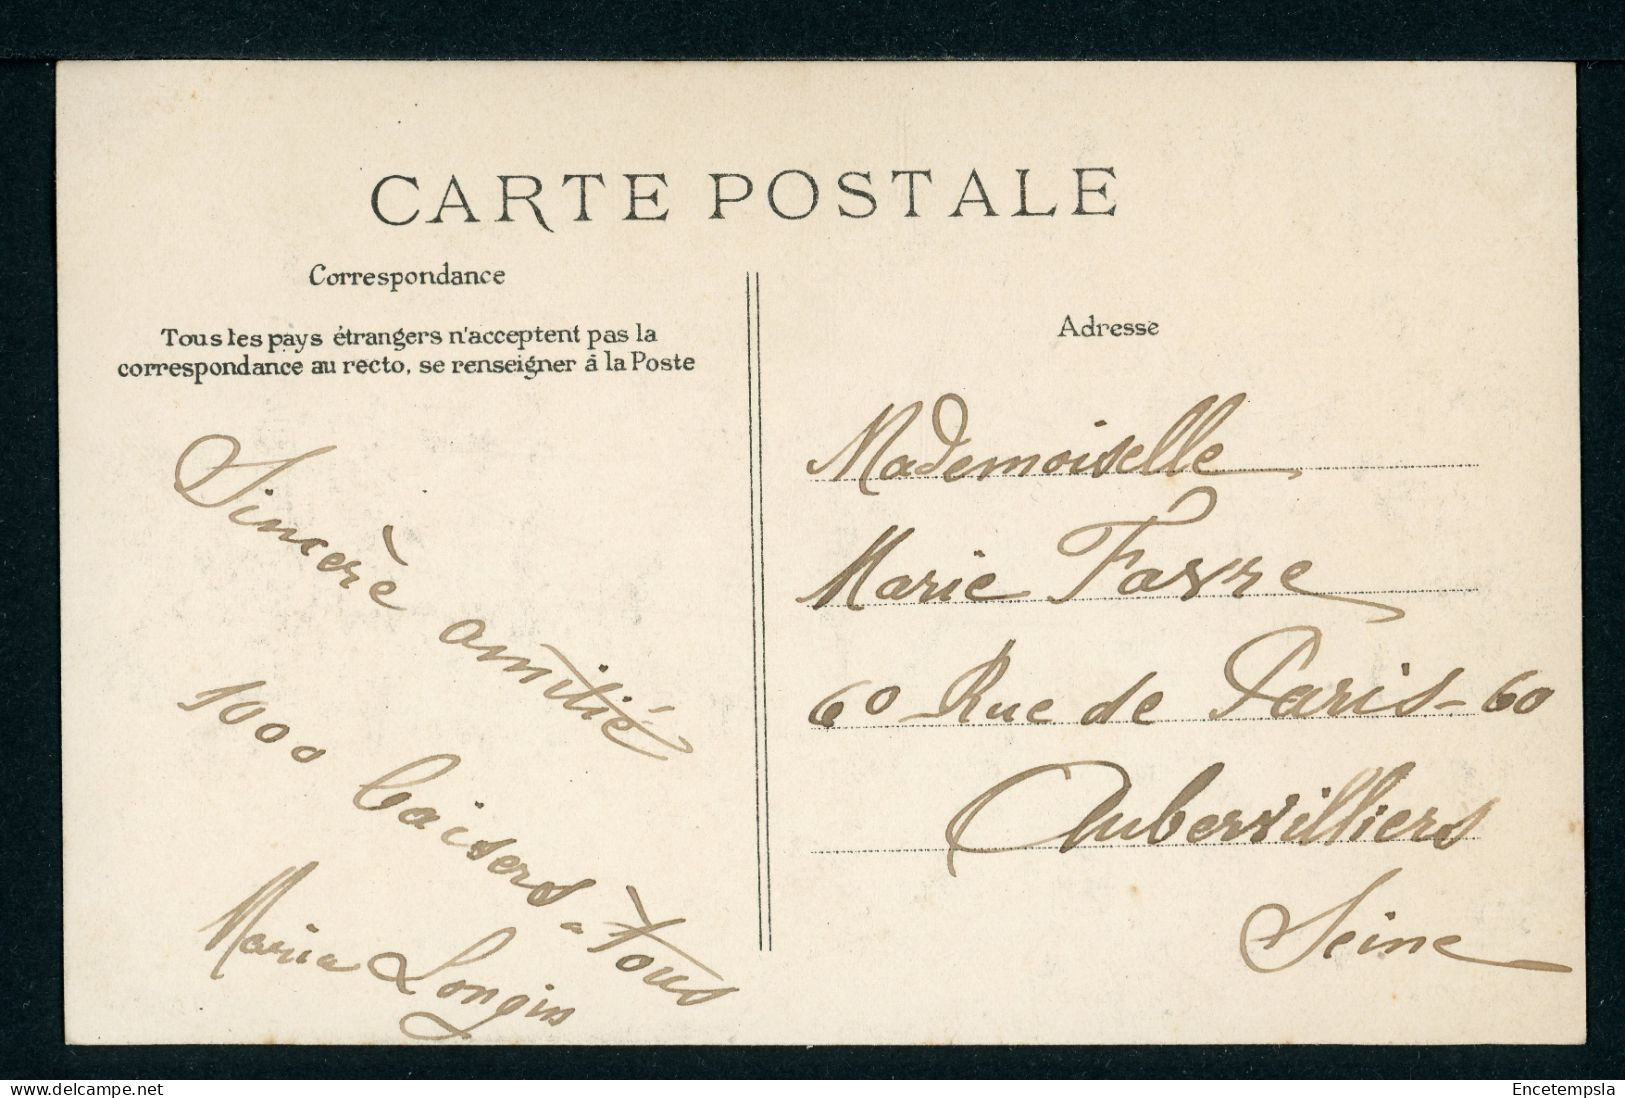 CARTE POSTALE
Correspondance
Tous les pays étrangers n'acceptent pas la
correspondance au recto, se renseigner à la Poste
Sincère amitié
1000 baisers à tous
Maria Longin
Adresse
Mademoiselle
Marie Favre
60 Rue de Paris - 60
Aubervilliers
Seine
www.delcampe.net
Encetempsla